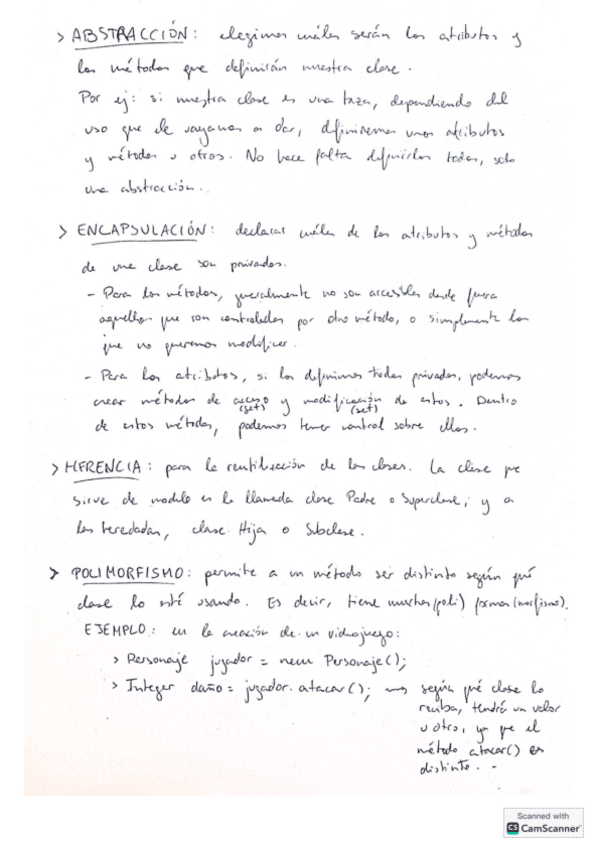 > ABSTRACCIÓN: elegimos cuáles serán los atributos y
los métodos que definirán nuestra clase.
Por ej: si nuestra clase es una taza, dependiendo del
uso que le vayamos a dar, definiremos unos atributos
y métodos u otros. No hace falta definirlos todos, solo
una abstracción.
> ENCAPSULACIÓN: declarar cuáles de los atributos y métodos
de una clase son privados.
- Para los métodos, generalmente no son accesibles desde fuera
aquellos que son controlados por otro método, o simplemente los
que no queremos modificar.
- Para los atributos, si los definimos todos privados, podemos
crear métodos de acceso y modificación de estos. Dentro
(set) (set)
de estos métodos, podemos tener control sobre ellos.
> HERENCIA: para la reutilización de las clases. La clase que
sirve de modelo es la llamada clase Padre o Superclase, y a
las heredadas, clase Hija o Subclase.
> POLIMORFISMO: permite a un método ser distinto según qué
clase lo esté usando. Es decir, tiene muchas (poli) formas (morfismo).
EJEMPLO: en la creación de un videojuego:
> Personaje jugador = new Personaje();
> Integer daño = jugador.atacar(); según qué clase lo
reciba, tendrá un valor
u otro, ya que el
método atacar() es
distinto.
Scanned with
CS CamScanner